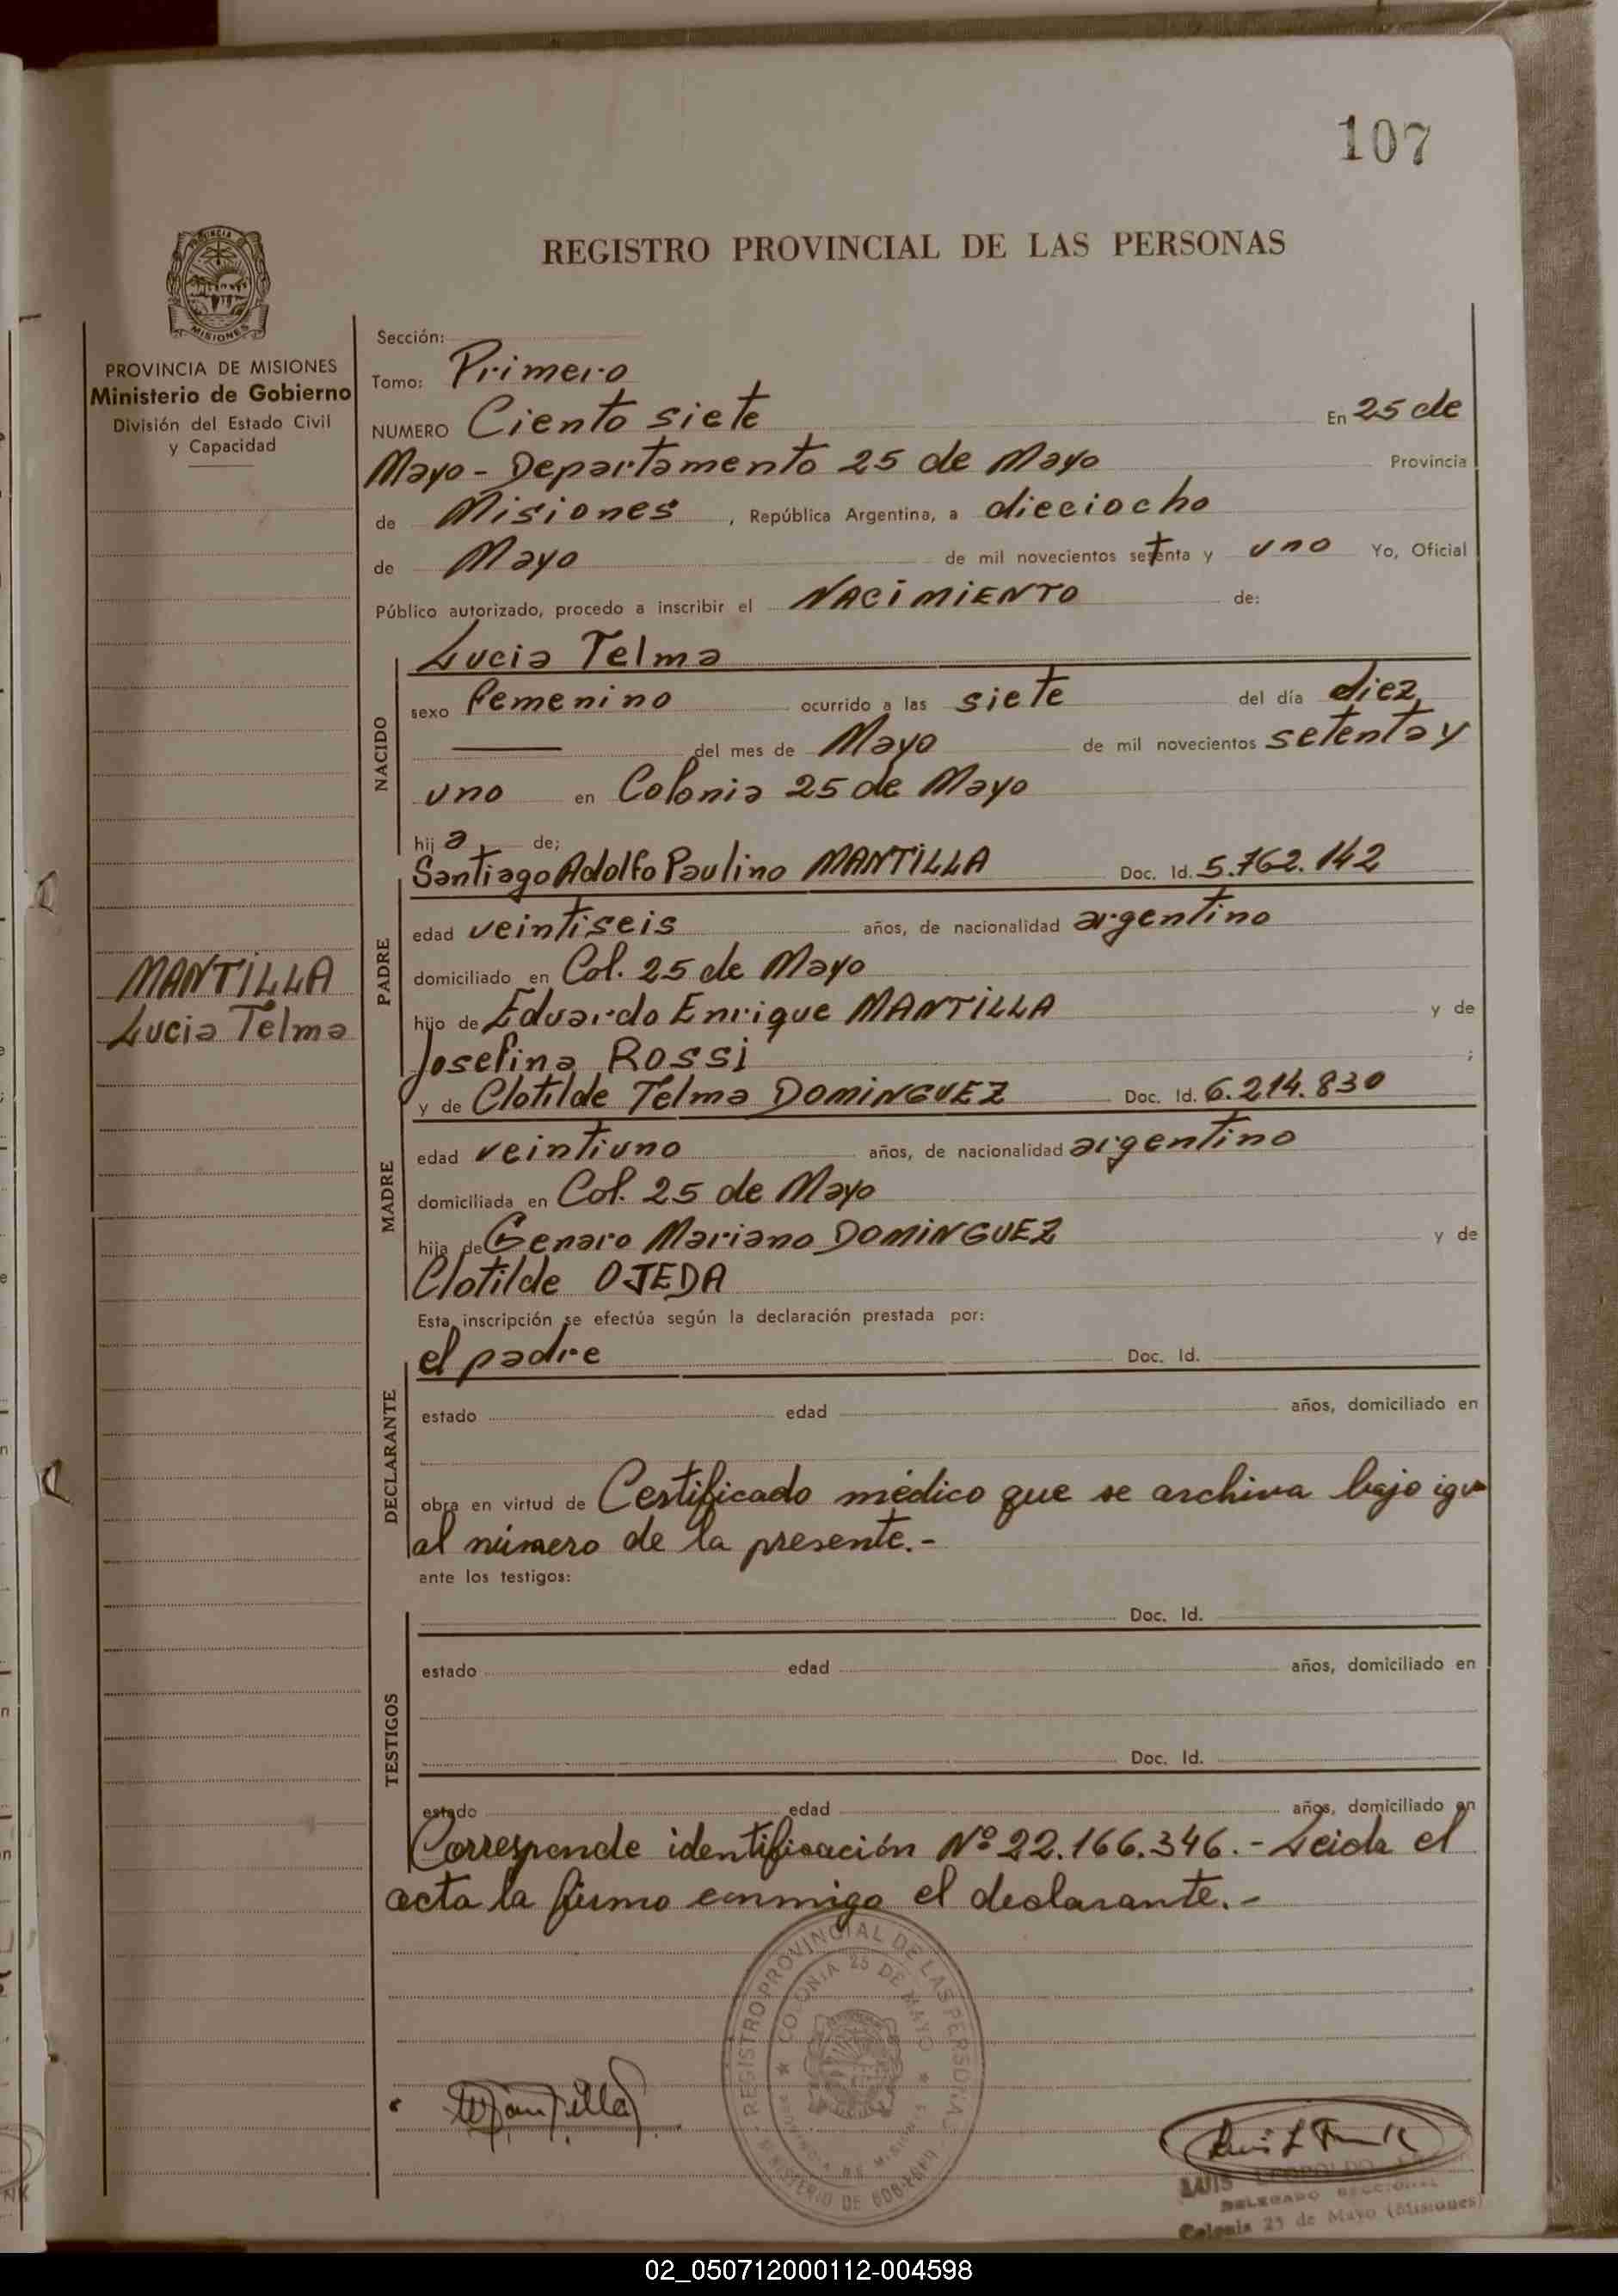 107
REGISTRO PROVINCIAL DE LAS PERSONAS
PROVINCIA DE
MISIONES
PROVINCIA DE MISIONES
Ministerio de Gobierno
División del Estado Civil
y Capacidad
MANTILLA
Lucia Telma
Sección:
Tomo: Primero
NUMERO Ciento siete En 25 de
Mayo - Departamento 25 de Mayo Provincia
de Misiones, República Argentina, a dieciocho
de Mayo de mil novecientos setenta y uno Yo, Oficial
Público autorizado, procedo a inscribir el NACIMIENTO de:
NACIDO
Lucia Telma
sexo femenino ocurrido a las siete del día diez
del mes de Mayo de mil novecientos setenta y
uno en Colonia 25 de Mayo
hija de;
PADRE
Santiago Adolfo Paulino MANTILLA Doc. Id. 5.762.142
edad veintiseis años, de nacionalidad argentino
domiciliado en Col. 25 de Mayo
hijo de Eduardo Enrique MANTILLA y de
Josefina ROSSI ;
MADRE
y de Clotilde Telma DOMINGUEZ Doc. Id. 6.214.830
edad veintiuno años, de nacionalidad argentino
domiciliada en Col. 25 de Mayo
hija de Genaro Mariano DOMINGUEZ y de
Clotilde OJEDA
Esta inscripción se efectúa según la declaración prestada por:
DECLARANTE
el padre Doc. Id.
estado edad años, domiciliado en
obra en virtud de Certificado médico que se archiva bajo igu
al número de la presente.-
ante los testigos:
TESTIGOS
Doc. Id.
estado edad años, domiciliado en
Doc. Id.
estado edad años, domiciliado en
Corresponde identificación Nº 22.166.346.- Leida el
acta la firmo conmigo el declarante.-
REGISTRO PROVINCIAL DE LAS PERSONAS
COLONIA 25 DE MAYO
PROVINCIA DE MISIONES
MINISTERIO DE GOBIERNO
Mantilla
LUIS LEOPOLDO
DELEGADO SECCIONAL
Colonia 25 de Mayo (Misiones)
02_050712000112-004598